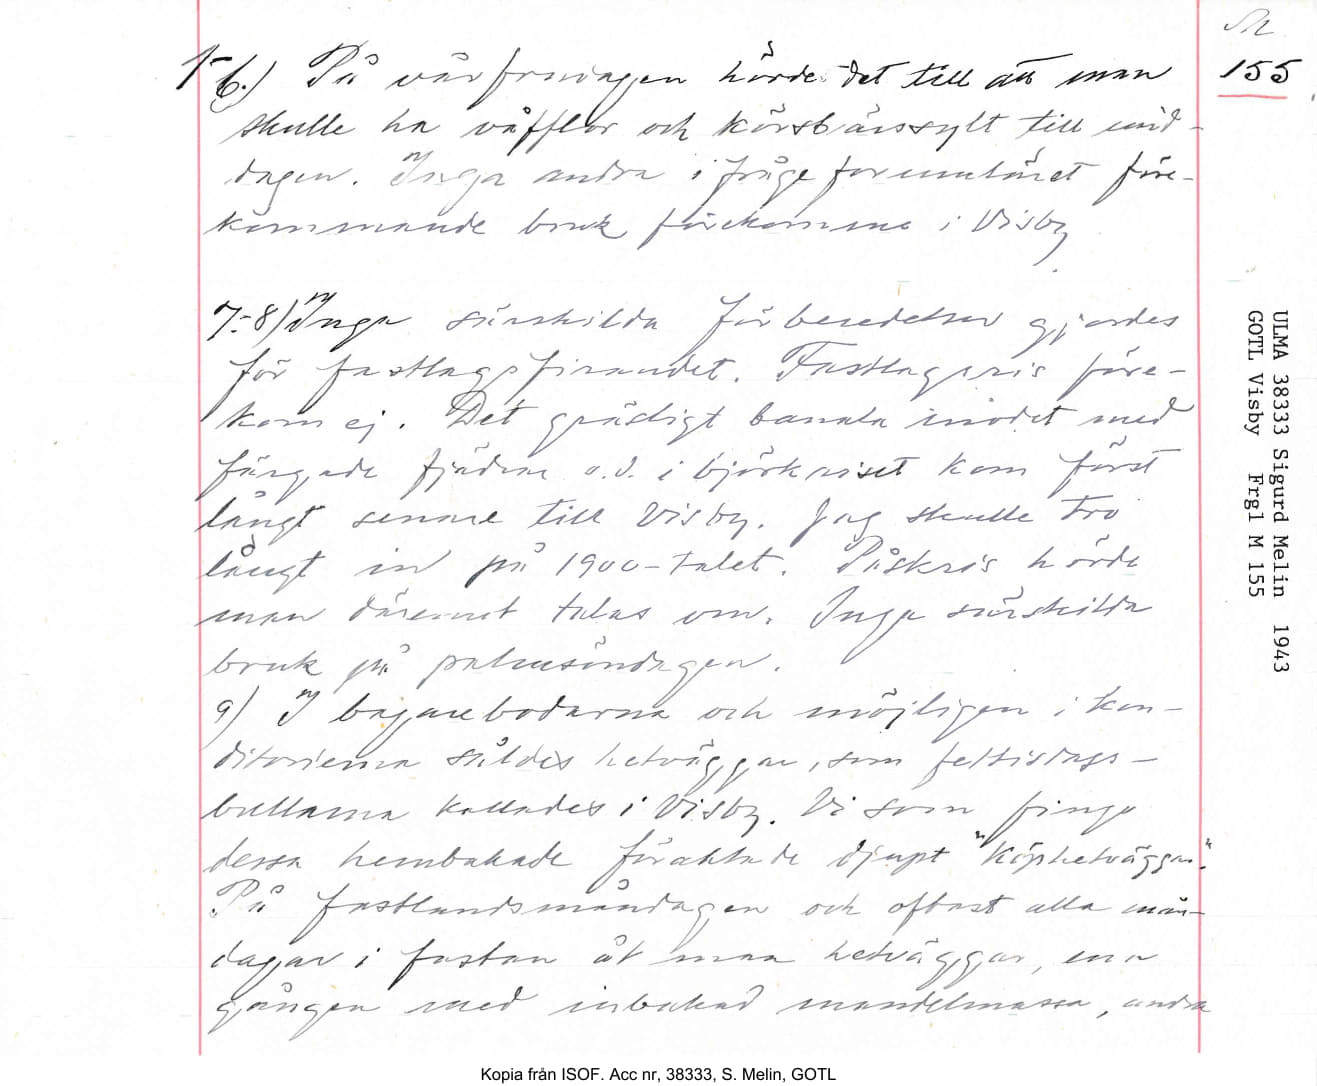 M
155
1-6.) På vårfrudagen hörde det till att man
skulle ha våfflor och körsbärssylt till mid-
dagen. Inga andra i frågeformuläret före-
kommande bruk förekomma i Visby
7-8) Inga särskilda förberedelser gjordes
för fastlagsfirandet. Fastlagsris före-
kom ej. Det gräsligt banala modet med
färgade fjädrar o.d. i björkriset kom först
långt senare till Visby. Jag skulle tro
långt in på 1900-talet. Påskris hörde
man däremot talas om. Inga särskilda
bruk på palmsöndagen.
9) I bagarebodarna och möjligen i kon-
ditorierna såldes hetväggar, som fettisdags-
bullarna kallades i Visby. Vi som fingo
dessa hembakade föraktade djupt "köphetväggar".
På fastlandsmåndagen och oftast alla mån-
dagar i fastan åt man hetväggar, ena
gången med inbakad mandelmassa, andra
ULMA 38333 Sigurd Melin 1943
GOTL Visby Frgl M 155
Kopia från ISOF. Acc nr, 38333, S. Melin, GOTL